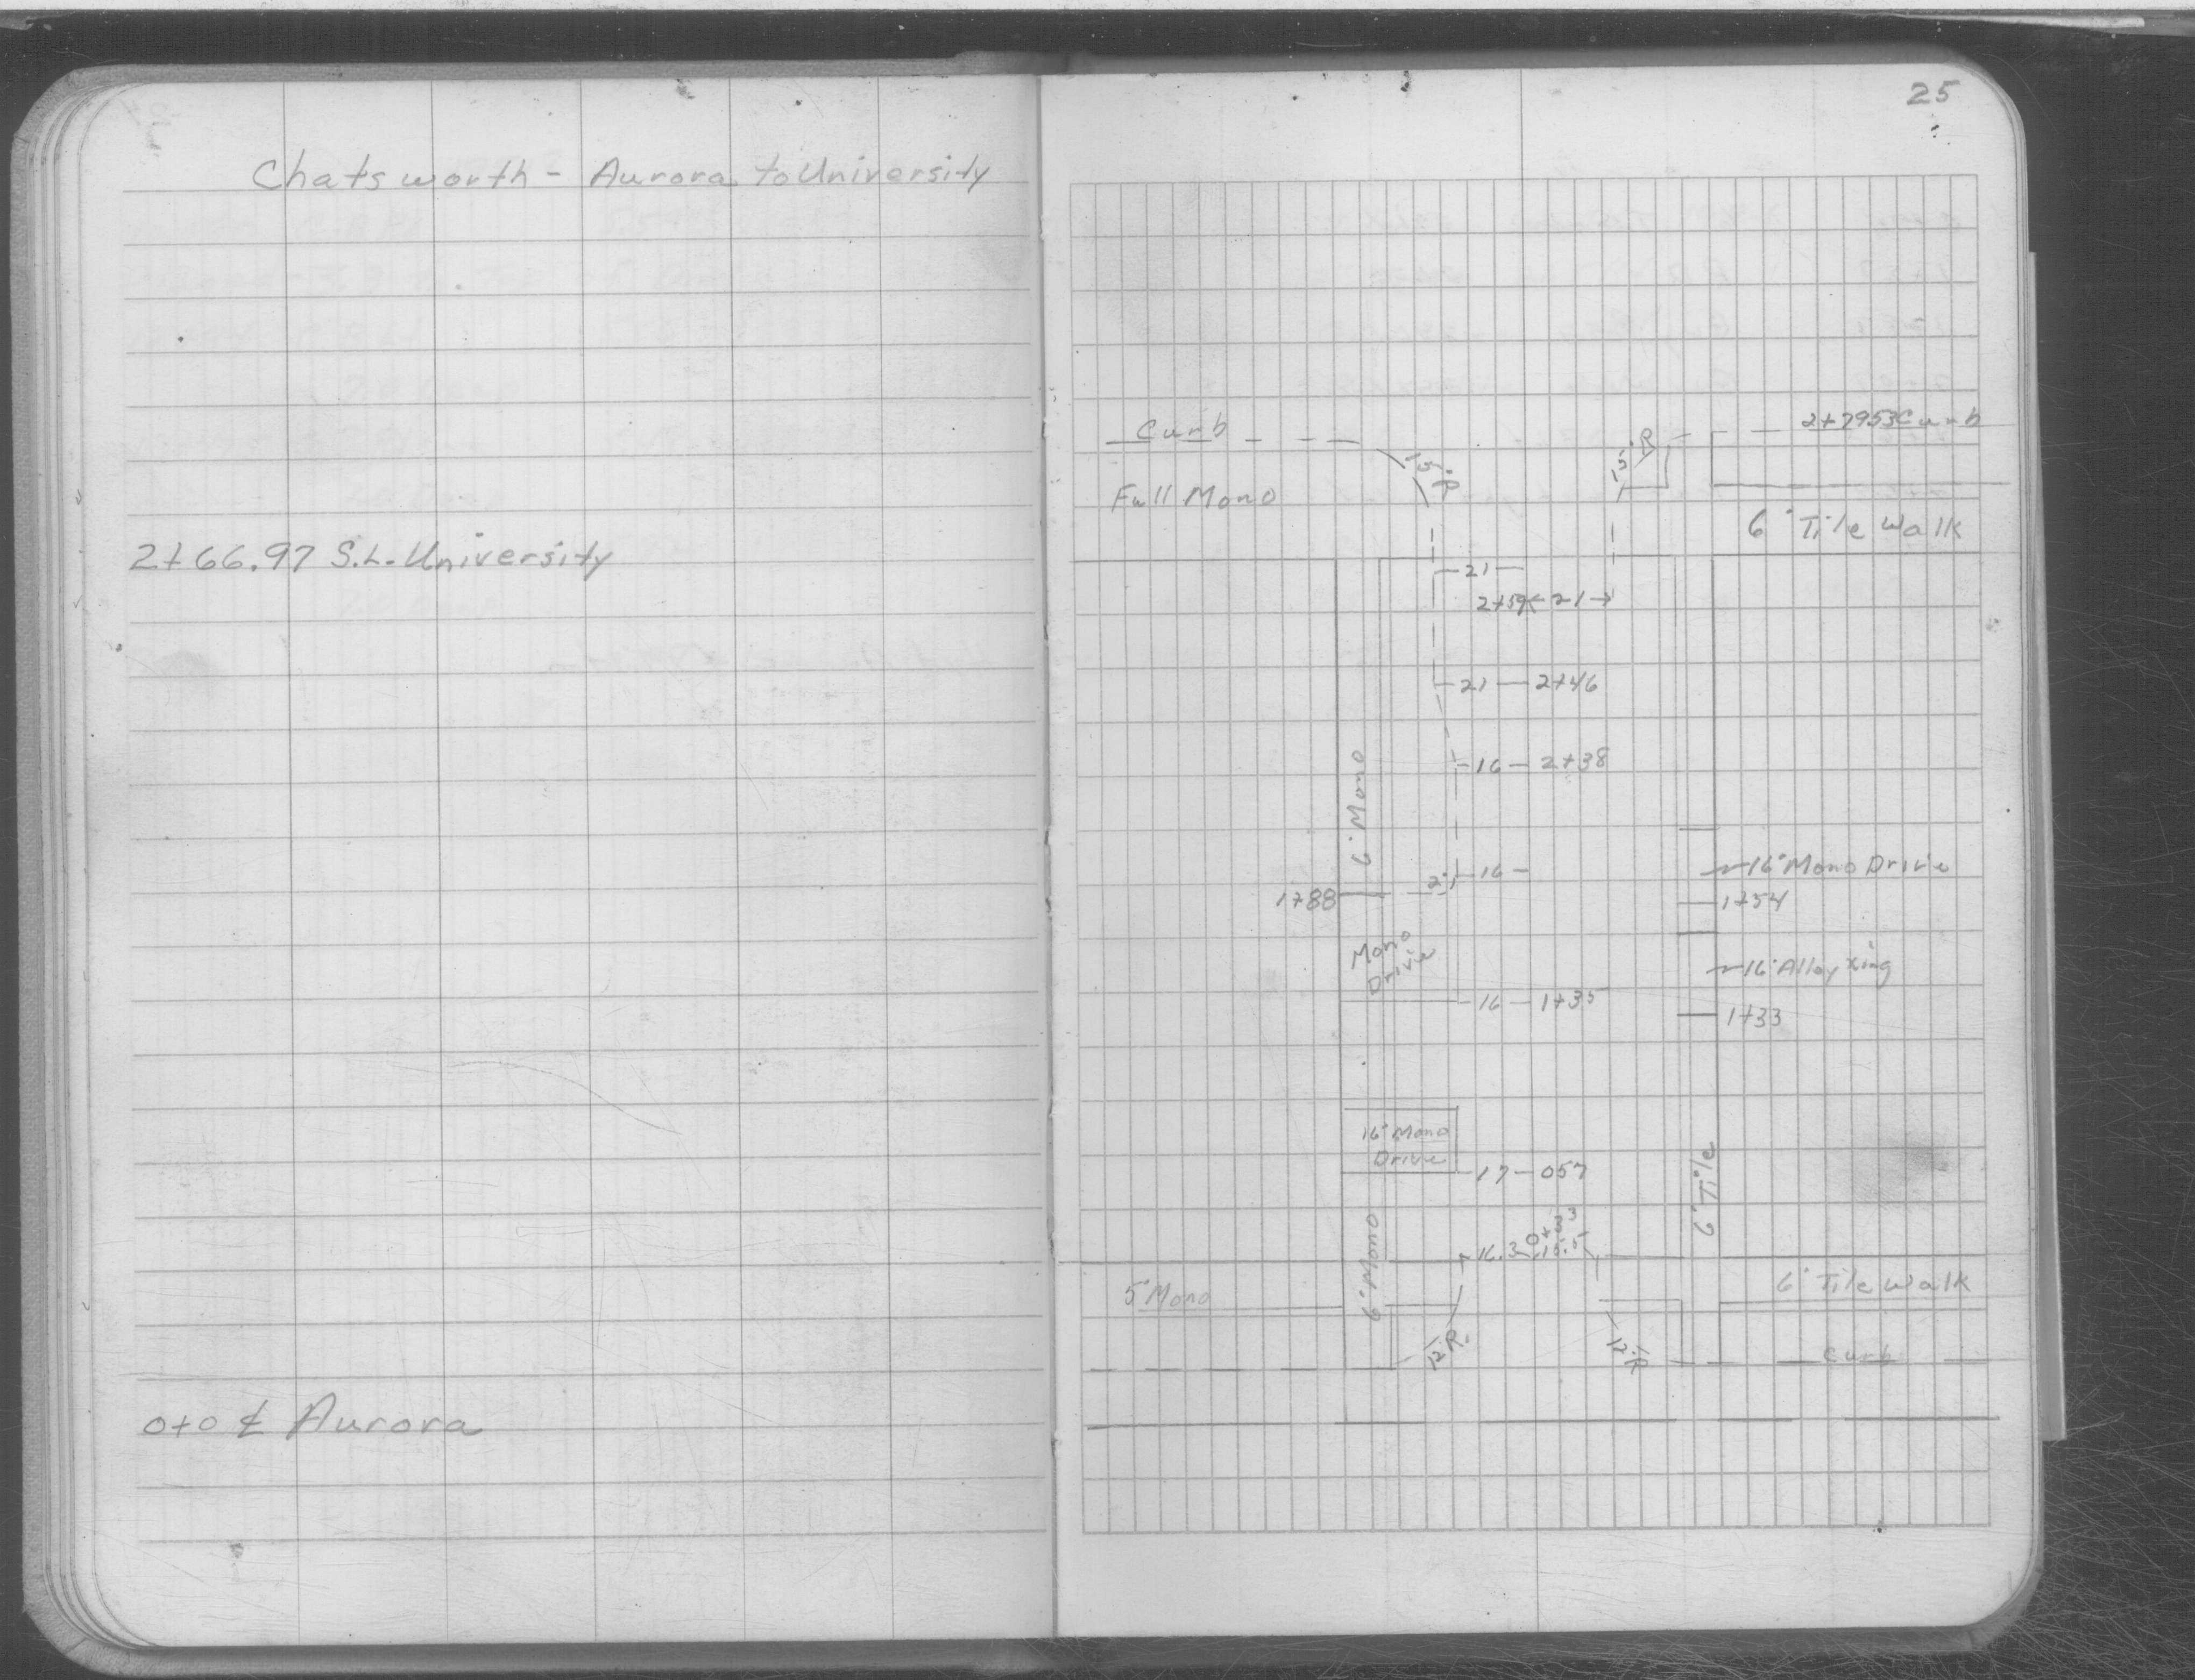 25
Chatsworth - Aurora to University
2+66.97 S.L. University
0+0 ℄ Aurora
Curb
2+79.53 Curb
15' R
15' R
Full Mono
6' Tile Walk
21
2+59 ← 21 →
21 — 2+46
16 — 2+38
6' Mono
16
2'
1+88
16' Mono Drive
1+54
Mono
Drive
16' Alley Xing
16 — 1+35
1+33
16' Mono
Drive
17 — 057
6' Tile
0+33
16.3
15.5
6' Mono
5' Mono
6' Tile Walk
12 R.
12' R
Curb